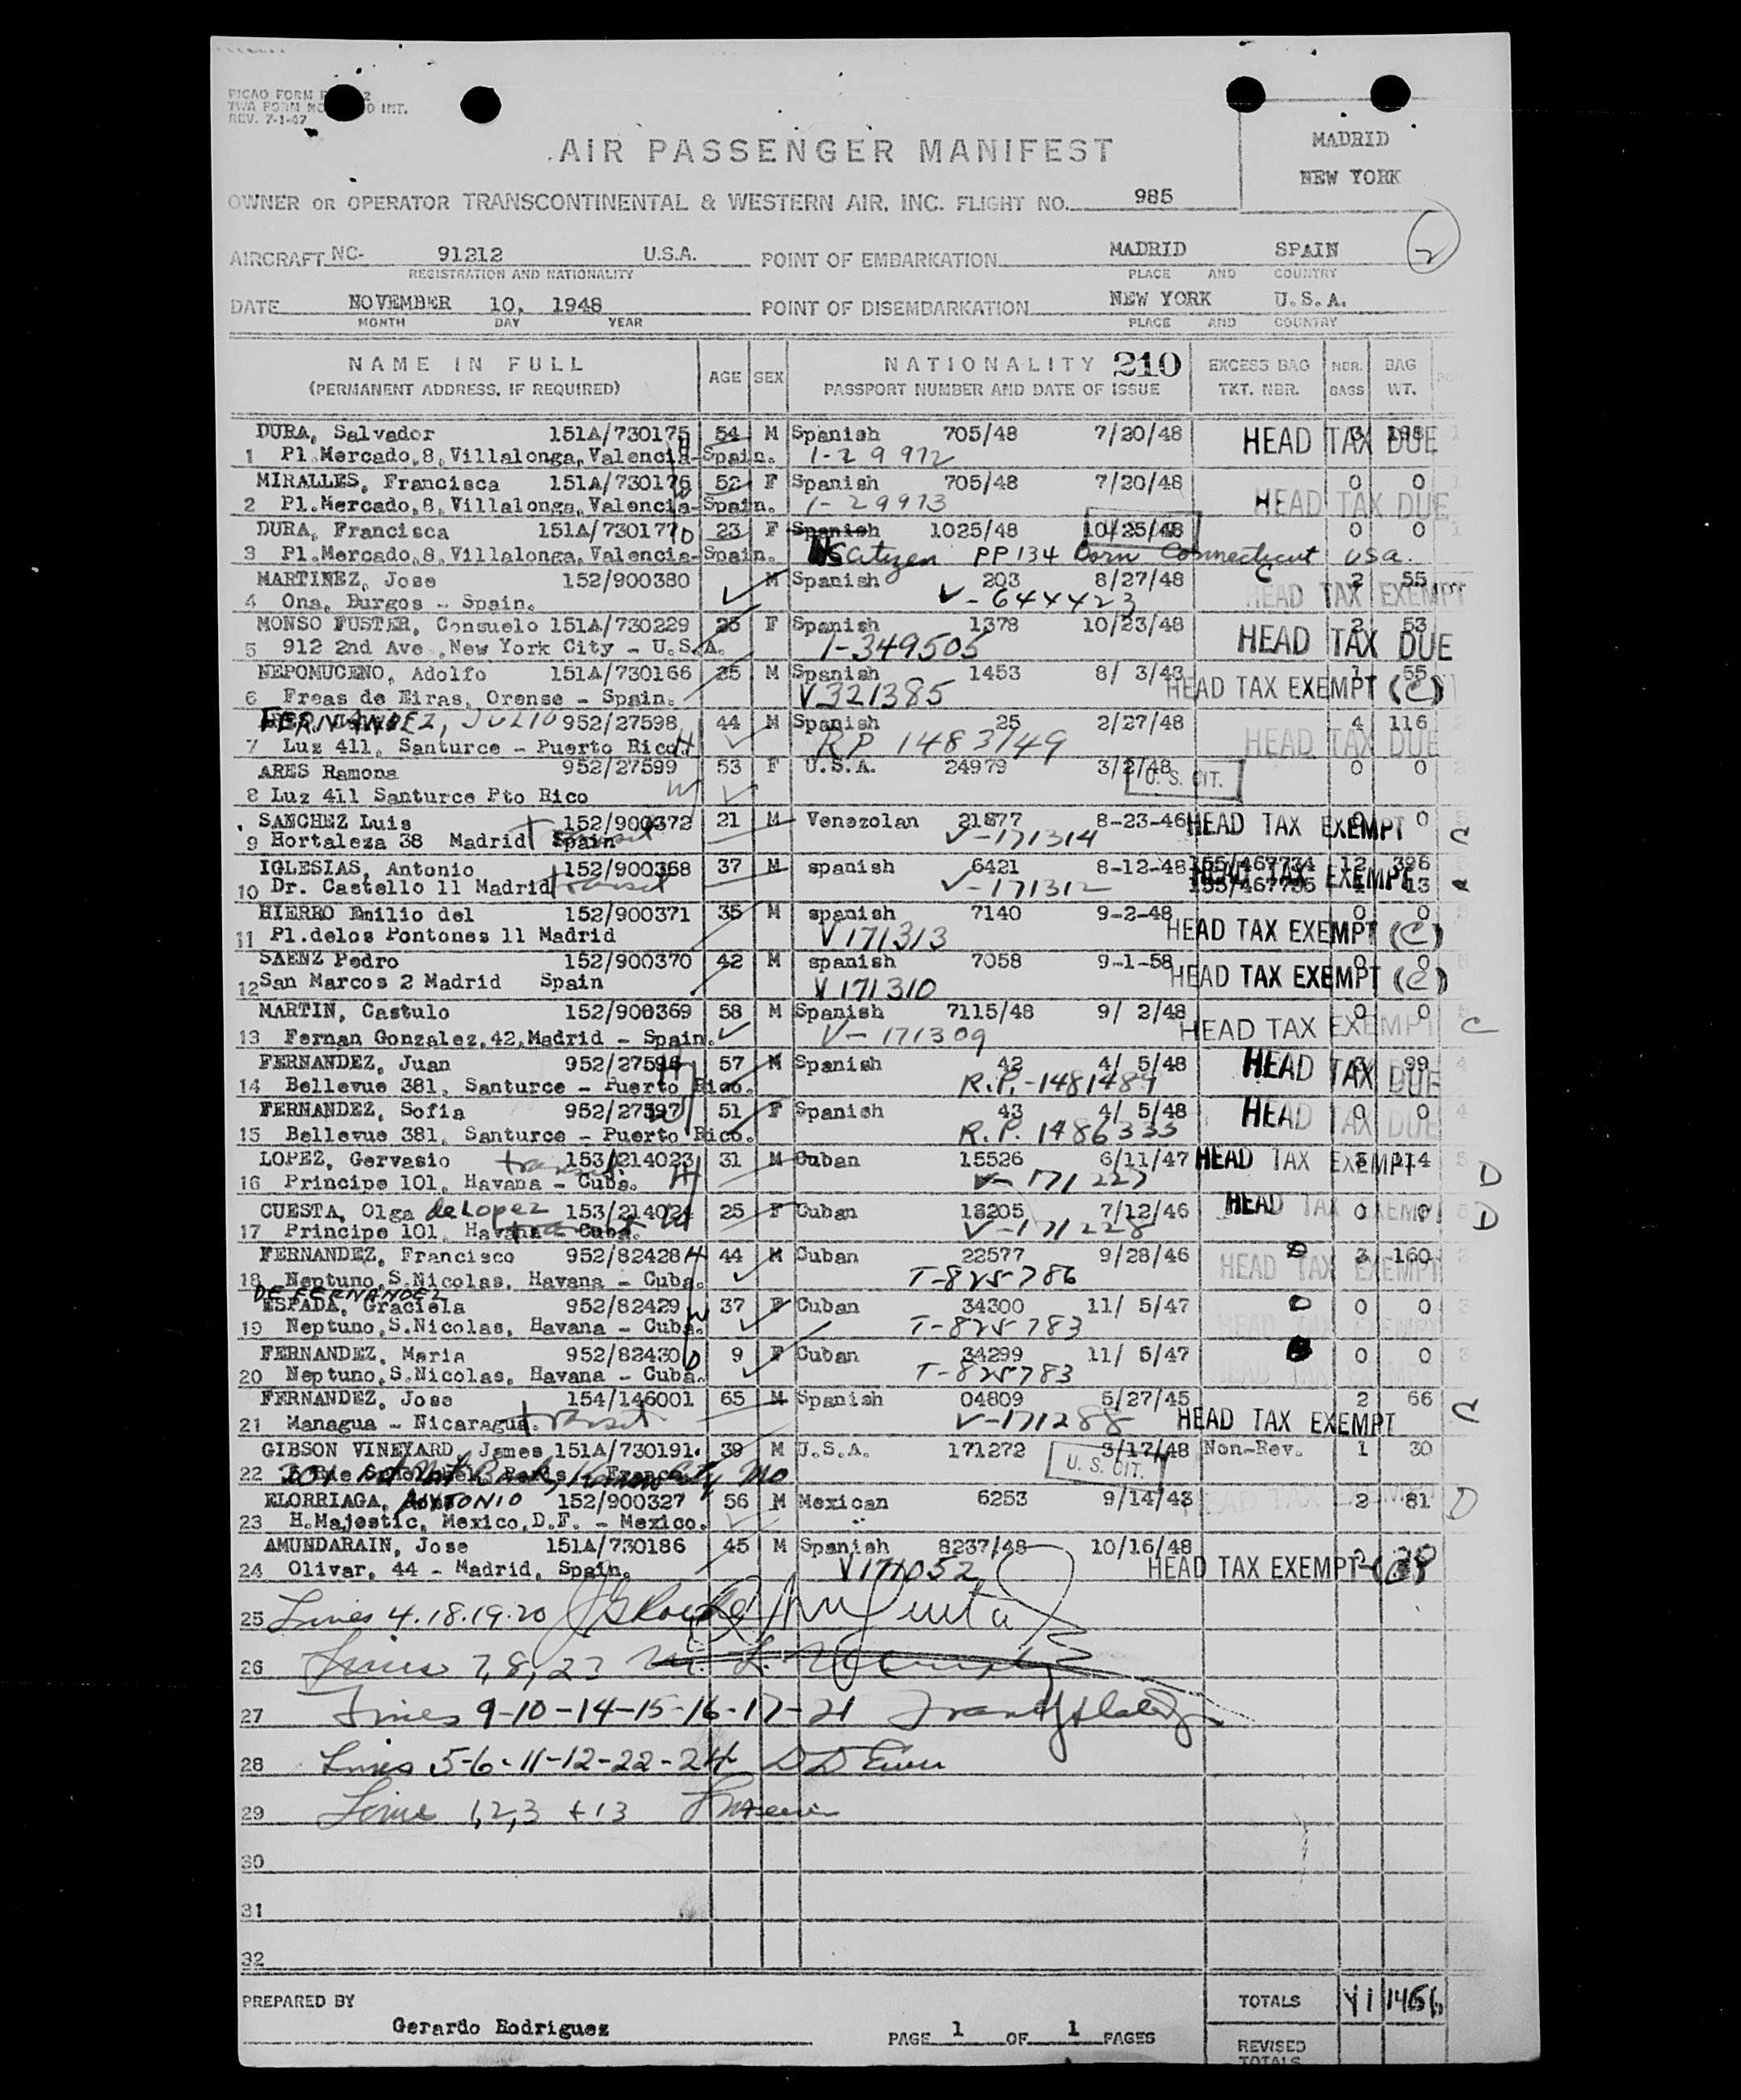 REV. 7-1-47
AIR PASSENGER MANIFEST
MADRID
NEW YORK
OWNER OR OPERATOR TRANSCONTINENTAL & WESTERN AIR, INC. FLIGHT NO. 985
2
AIRCRAFT NC- 91212 U.S.A. POINT OF EMBARKATION MADRID SPAIN
REGISTRATION AND NATIONALITY PLACE AND COUNTRY
DATE NOVEMBER 10, 1948 POINT OF DISEMBARKATION NEW YORK U.S.A.
MONTH DAY YEAR PLACE AND COUNTRY
NAME IN FULL AGE SEX NATIONALITY 210 EXCESS BAG NBR. BAG
(PERMANENT ADDRESS, IF REQUIRED) PASSPORT NUMBER AND DATE OF ISSUE TKT. NBR. BAGS WT.
DURA, Salvador 151A/730175 54 M Spanish 705/48 7/20/48 HEAD TAX DUE
1 Pl.Mercado,8,Villalonga,Valencia-Spain. 1-29972
MIRALLES, Francisca 151A/730176 52 F Spanish 705/48 7/20/48 0 0
2 Pl.Mercado,8,Villalonga,Valencia-Spain. 1-29973 HEAD TAX DUE
DURA, Francisca 151A/730177 23 F Spanish 1025/48 10/25/48 0 0
3 Pl.Mercado,8,Villalonga,Valencia-Spain. US Citizen PP 134 Born Connecticut USA.
MARTINEZ, Jose 152/900380 M Spanish 203 8/27/48 C 2 55
4 Ona, Burgos - Spain. V-644423 HEAD TAX EXEMPT
MONSO FUSTER, Consuelo 151A/730229 F Spanish 1378 10/23/48 2 53
5 912 2nd Ave ,New York City - U.S.A. 1-349505 HEAD TAX DUE
NEPOMUCENO, Adolfo 151A/730166 25 M Spanish 1453 8/ 3/43 1 55
6 Freas de Eiras, Orense - Spain. V321385 HEAD TAX EXEMPT (C)
FERNANDEZ, JULIO 952/27598 44 M Spanish 25 2/27/48 4 116
7 Luz 411, Santurce - Puerto Rico. H RP 1483149 HEAD TAX DUE
ARES Ramona 952/27599 53 F U.S.A. 24979 3/2/48 U. S. CIT. 0 0
8 Luz 411 Santurce Pto Rico W
SANCHEZ Luis 152/900372 21 M Venezolan 21877 8-23-46 HEAD TAX EXEMPT 0
9 Hortaleza 38 Madrid Spain transit V-171314 C
IGLESIAS, Antonio 152/900368 37 M spanish 6421 8-12-48 155/467734 12 396
10 Dr. Castello 11 Madrid transit V-171312 HEAD TAX EXEMPT 13
HIERRO Emilio del 152/900371 35 M spanish 7140 9-2-48 0 0
11 Pl.delos Pontones 11 Madrid V171313 HEAD TAX EXEMPT (C)
SAENZ Pedro 152/900370 42 M spanish 7058 9-1-58 0 0
12 San Marcos 2 Madrid Spain V171310 HEAD TAX EXEMPT (C)
MARTIN, Castulo 152/900369 58 M Spanish 7115/48 9/ 2/48 0 0
13 Fernan Gonzalez,42,Madrid - Spain. V-171309 HEAD TAX EXEMPT C
FERNANDEZ, Juan 952/27596 57 M Spanish 42 4/ 5/48 HEAD TAX DUE 99
14 Bellevue 381, Santurce - Puerto Rico. R.P.-1481489
FERNANDEZ, Sofia 952/27597 51 F Spanish 43 4/ 5/48 HEAD TAX DUE 0 0
15 Bellevue 381, Santurce - Puerto Rico. R.P. 1486333
LOPEZ, Gervasio 153/214023 31 M Cuban 15526 6/11/47 HEAD TAX EXEMPT
16 Principe 101, Havana - Cuba. transit H V-171227 D
CUESTA, Olga de Lopez 153/214024 25 F Cuban 18205 7/12/46 HEAD TAX EXEMPT 0 0
17 Principe 101, Havana - Cuba. transit W V-171228 D
FERNANDEZ, Francisco 952/82428 H 44 M Cuban 22577 9/28/46 D 3 160
18 Neptuno,S.Nicolas, Havana - Cuba. T-825786 HEAD TAX EXEMPT
DE FERNANDEZ
ESPADA, Graciela 952/82429 37 F Cuban 34300 11/ 5/47 D 0 0
19 Neptuno,S.Nicolas, Havana - Cuba. W T-825783 HEAD TAX EXEMPT
FERNANDEZ, Maria 952/82430 9 F Cuban 34299 11/ 5/47 0 0
20 Neptuno,S.Nicolas, Havana - Cuba. D T-825783 HEAD TAX EXEMPT
FERNANDEZ, Jose 154/146001 65 M Spanish 04809 5/27/45 2 66
21 Managua - Nicaragua. transit V-171288 HEAD TAX EXEMPT C
GIBSON VINEYARD, James 151A/730191 39 M U.S.A. 171272 3/17/48 Non-Rev. 1 30
22 Kansas City Mo U. S. CIT.
ELORRIAGA, ANTONIO 152/900327 56 M Mexican 6253 9/14/43 2 81
23 H.Majestic, Mexico,D.F. - Mexico. HEAD TAX EXEMPT D
AMUNDARAIN, Jose 151A/730186 45 M Spanish 8237/48 10/16/48
24 Olivar, 44 - Madrid, Spain. V171052 HEAD TAX EXEMPT
25 Lines 4.18.19.20
26 Lines 7,8,23
27 Lines 9-10-14-15-16-17-21
28 Lines 5-6-11-12-22-24
29 Line 1,2,3 + 13
30
31
32
PREPARED BY TOTALS
Gerardo Rodriguez PAGE 1 OF 1 PAGES
REVISED
TOTALS